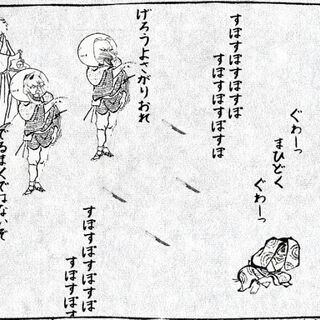 ぐわーっ
まひどく
ぐわーっ
すぽすぽすぽすぽ
すぽすぽすぽすぽ
げろうよさがりおれ
すぽすぽすぽすぽ
すぽすぽす
でるまくではないぞ